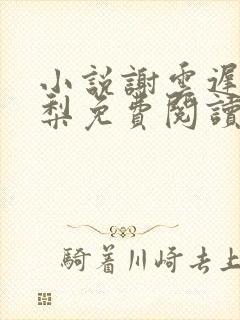 小說謝雲遲
梨免費閱讀
騎着川崎去上